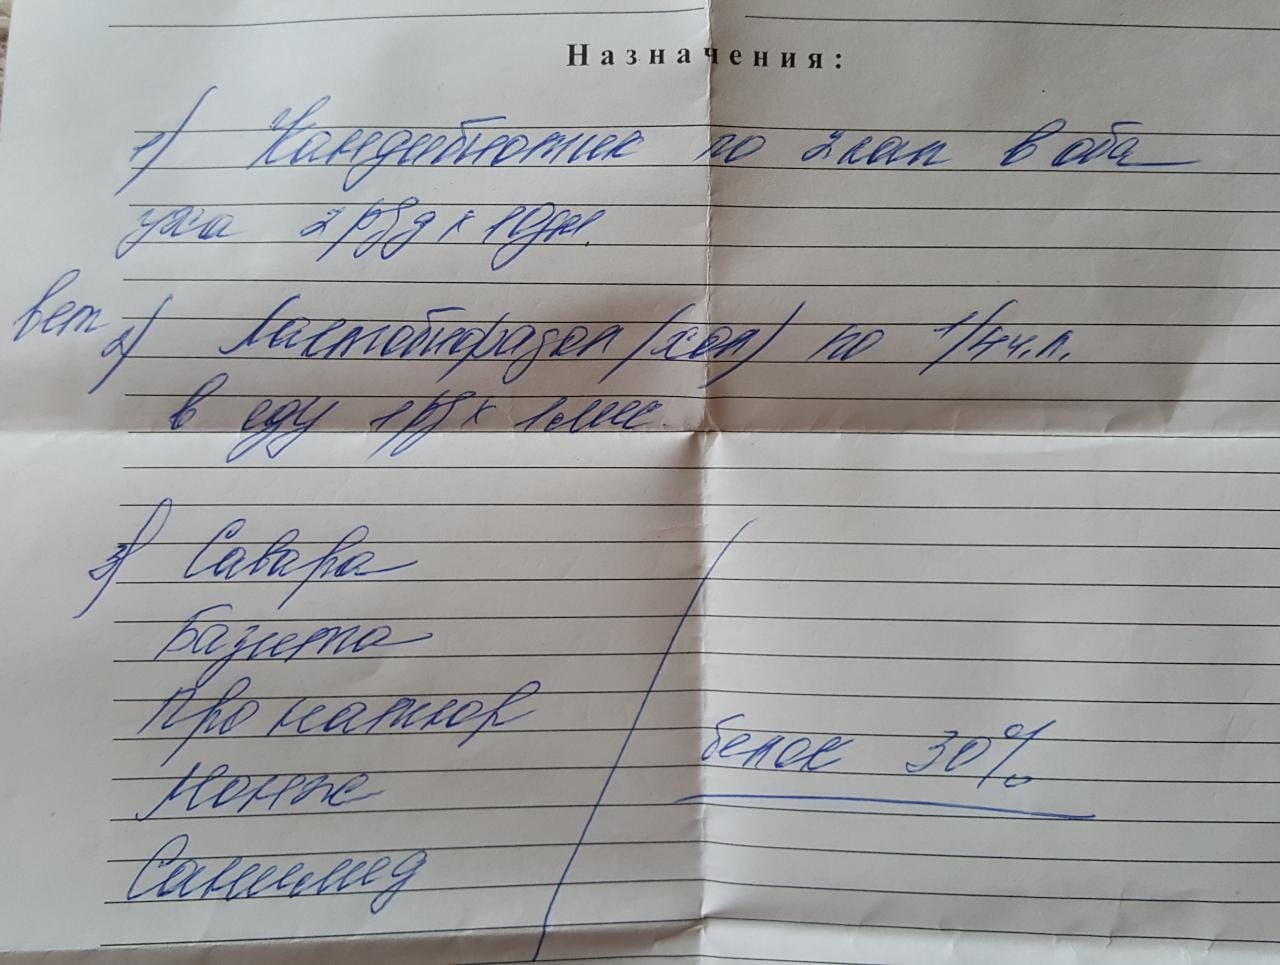 Назначения:
1) Кандибиотик по 2 кап в оба
уха 2 р/д х 10 дн.
вет 2) Лактобифадол (хол) по 1/4 ч.л.
в еду 1 р/д х 1 мес.
3) Савара
Базита
Про натюр
Монже
Санимед
белок 30%